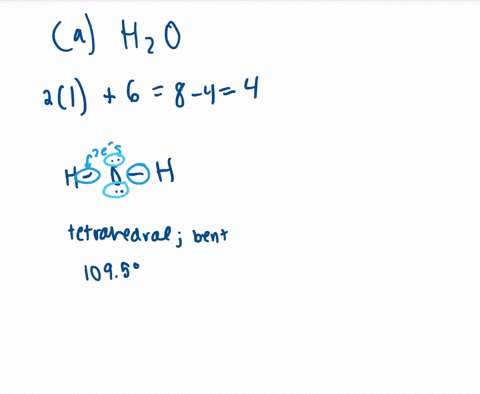 (a) H₂O
2(1) + 6 = 8 - 4 = 4
2e⁻s
H - Ö - H
tetrahedral; bent
109.5°